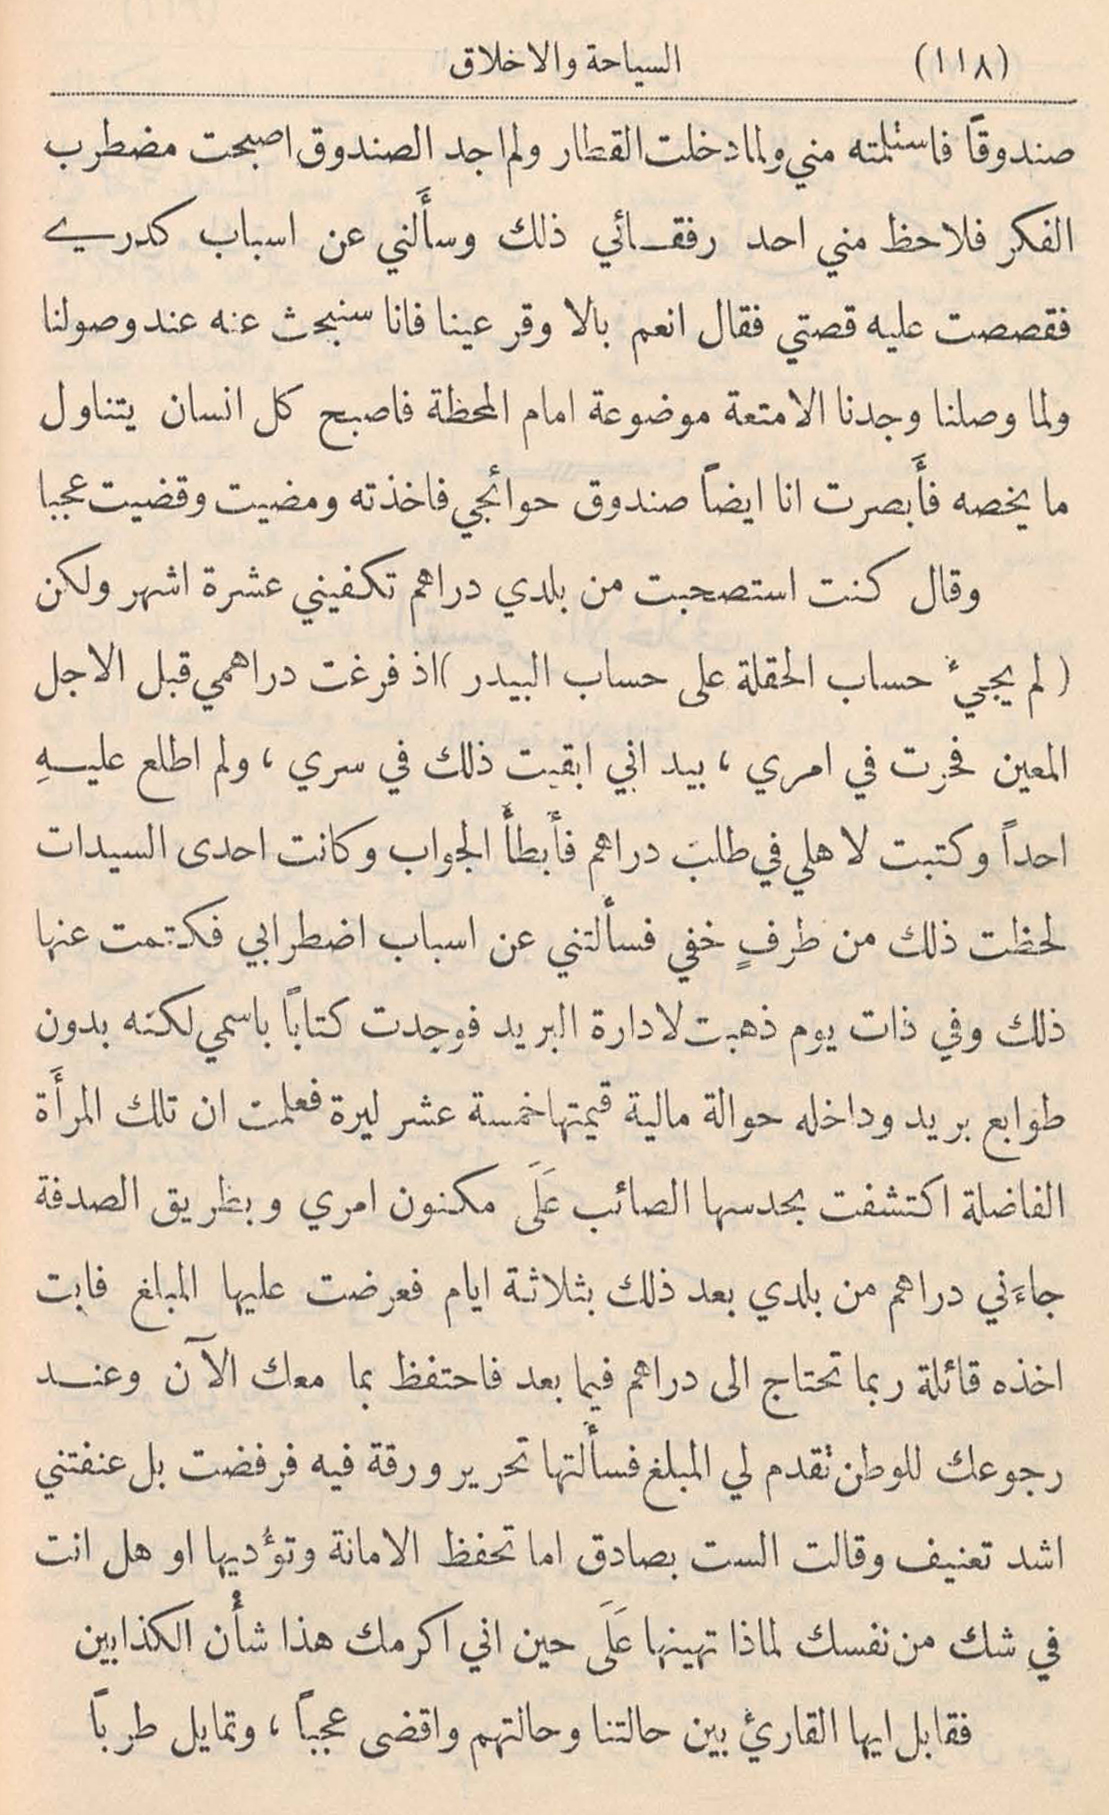 (١١٨) السياحة والاخلاق
صندوقاً فاستلمته مني ولما دخلت القطار ولم اجد الصندوق اصبحت مضطرب
الفكر فلاحظ مني احد رفقـائي ذلك وسأَلني عن اسباب كدري
فقصصت عليه قصتي فقال انعم بالا وقر عينا فانا سنبحث عنه عند وصولنا
ولما وصلنا وجدنا الامتعة موضوعة امام المحطة فاصبح كل انسان يتناول
ما يخصه فأَبصرت انا ايضاً صندوق حوائجي فاخذته ومضيت وقضيت عجبا
وقال كنت استصحبت من بلدي دراهم تكفيني عشرة اشهر ولكن
( لم يجيءْ حساب الحقلة على حساب البيدر )اذ فرغت دراهمي قبل الاجل
المعين فحرت في امري ، بيد اني ابقيت ذلك في سري ، ولم اطلع عليـهِ
احداً وكتبت لاهلي في طلب دراهم فأَبطأَ الجواب وكانت احدى السيدات
لحظت ذلك من طرفٍ خفي فسألتني عن اسباب اضطرابي فكتمت عنها
ذلك وفي ذات يوم ذهبت لادارة البريد فوجدت كتاباً باسمي لكنه بدون
طوابع بريد وداخله حوالة مالية قيمتها خمسة عشر ليرة فعلمت ان تلك المرأَة
الفاضلة اكتشفت بحدسها الصائب عَلَى مكنون امري وبطريق الصدفة
جاءَني دراهم من بلدي بعد ذلك بثلاثة ايام فعرضت عليها المبلغ فابت
اخذه قائلة ربما تحتاج الى دراهم فيما بعد فاحتفظ بما معك الآن وعنـد
رجوعك للوطن تقدم لي المبلغ فسأَلتها تحرير ورقة فيه فرفضت بل عنفتني
اشد تعنيف وقالت الست بصادق اما تحفظ الامانة وتوءْديها او هل انت
في شك من نفسك لماذا تهينها عَلَى حين اني اكرمك هذا شأْن الكذابين
فقابل ايها القارئ بين حالتنا وحالتهم واقضى عجباً ، وتمايل طرباً